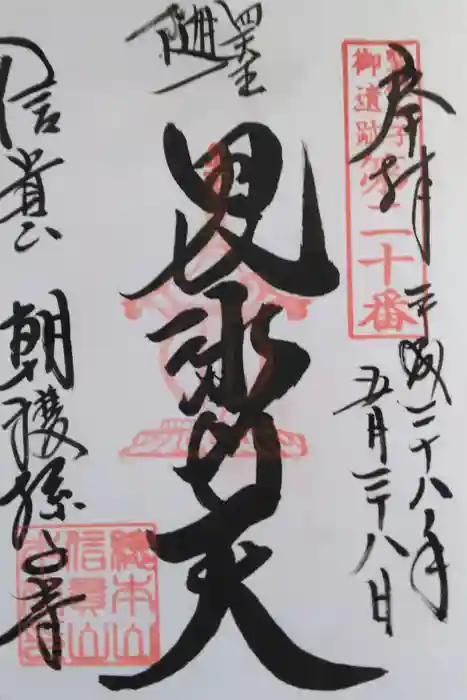 奉拝
平成二十八年
五月二十八日
聖徳太子
御遺跡第二十番
四天王
随一
毘沙門天
信貴山 朝護孫子寺
總本山
信貴山